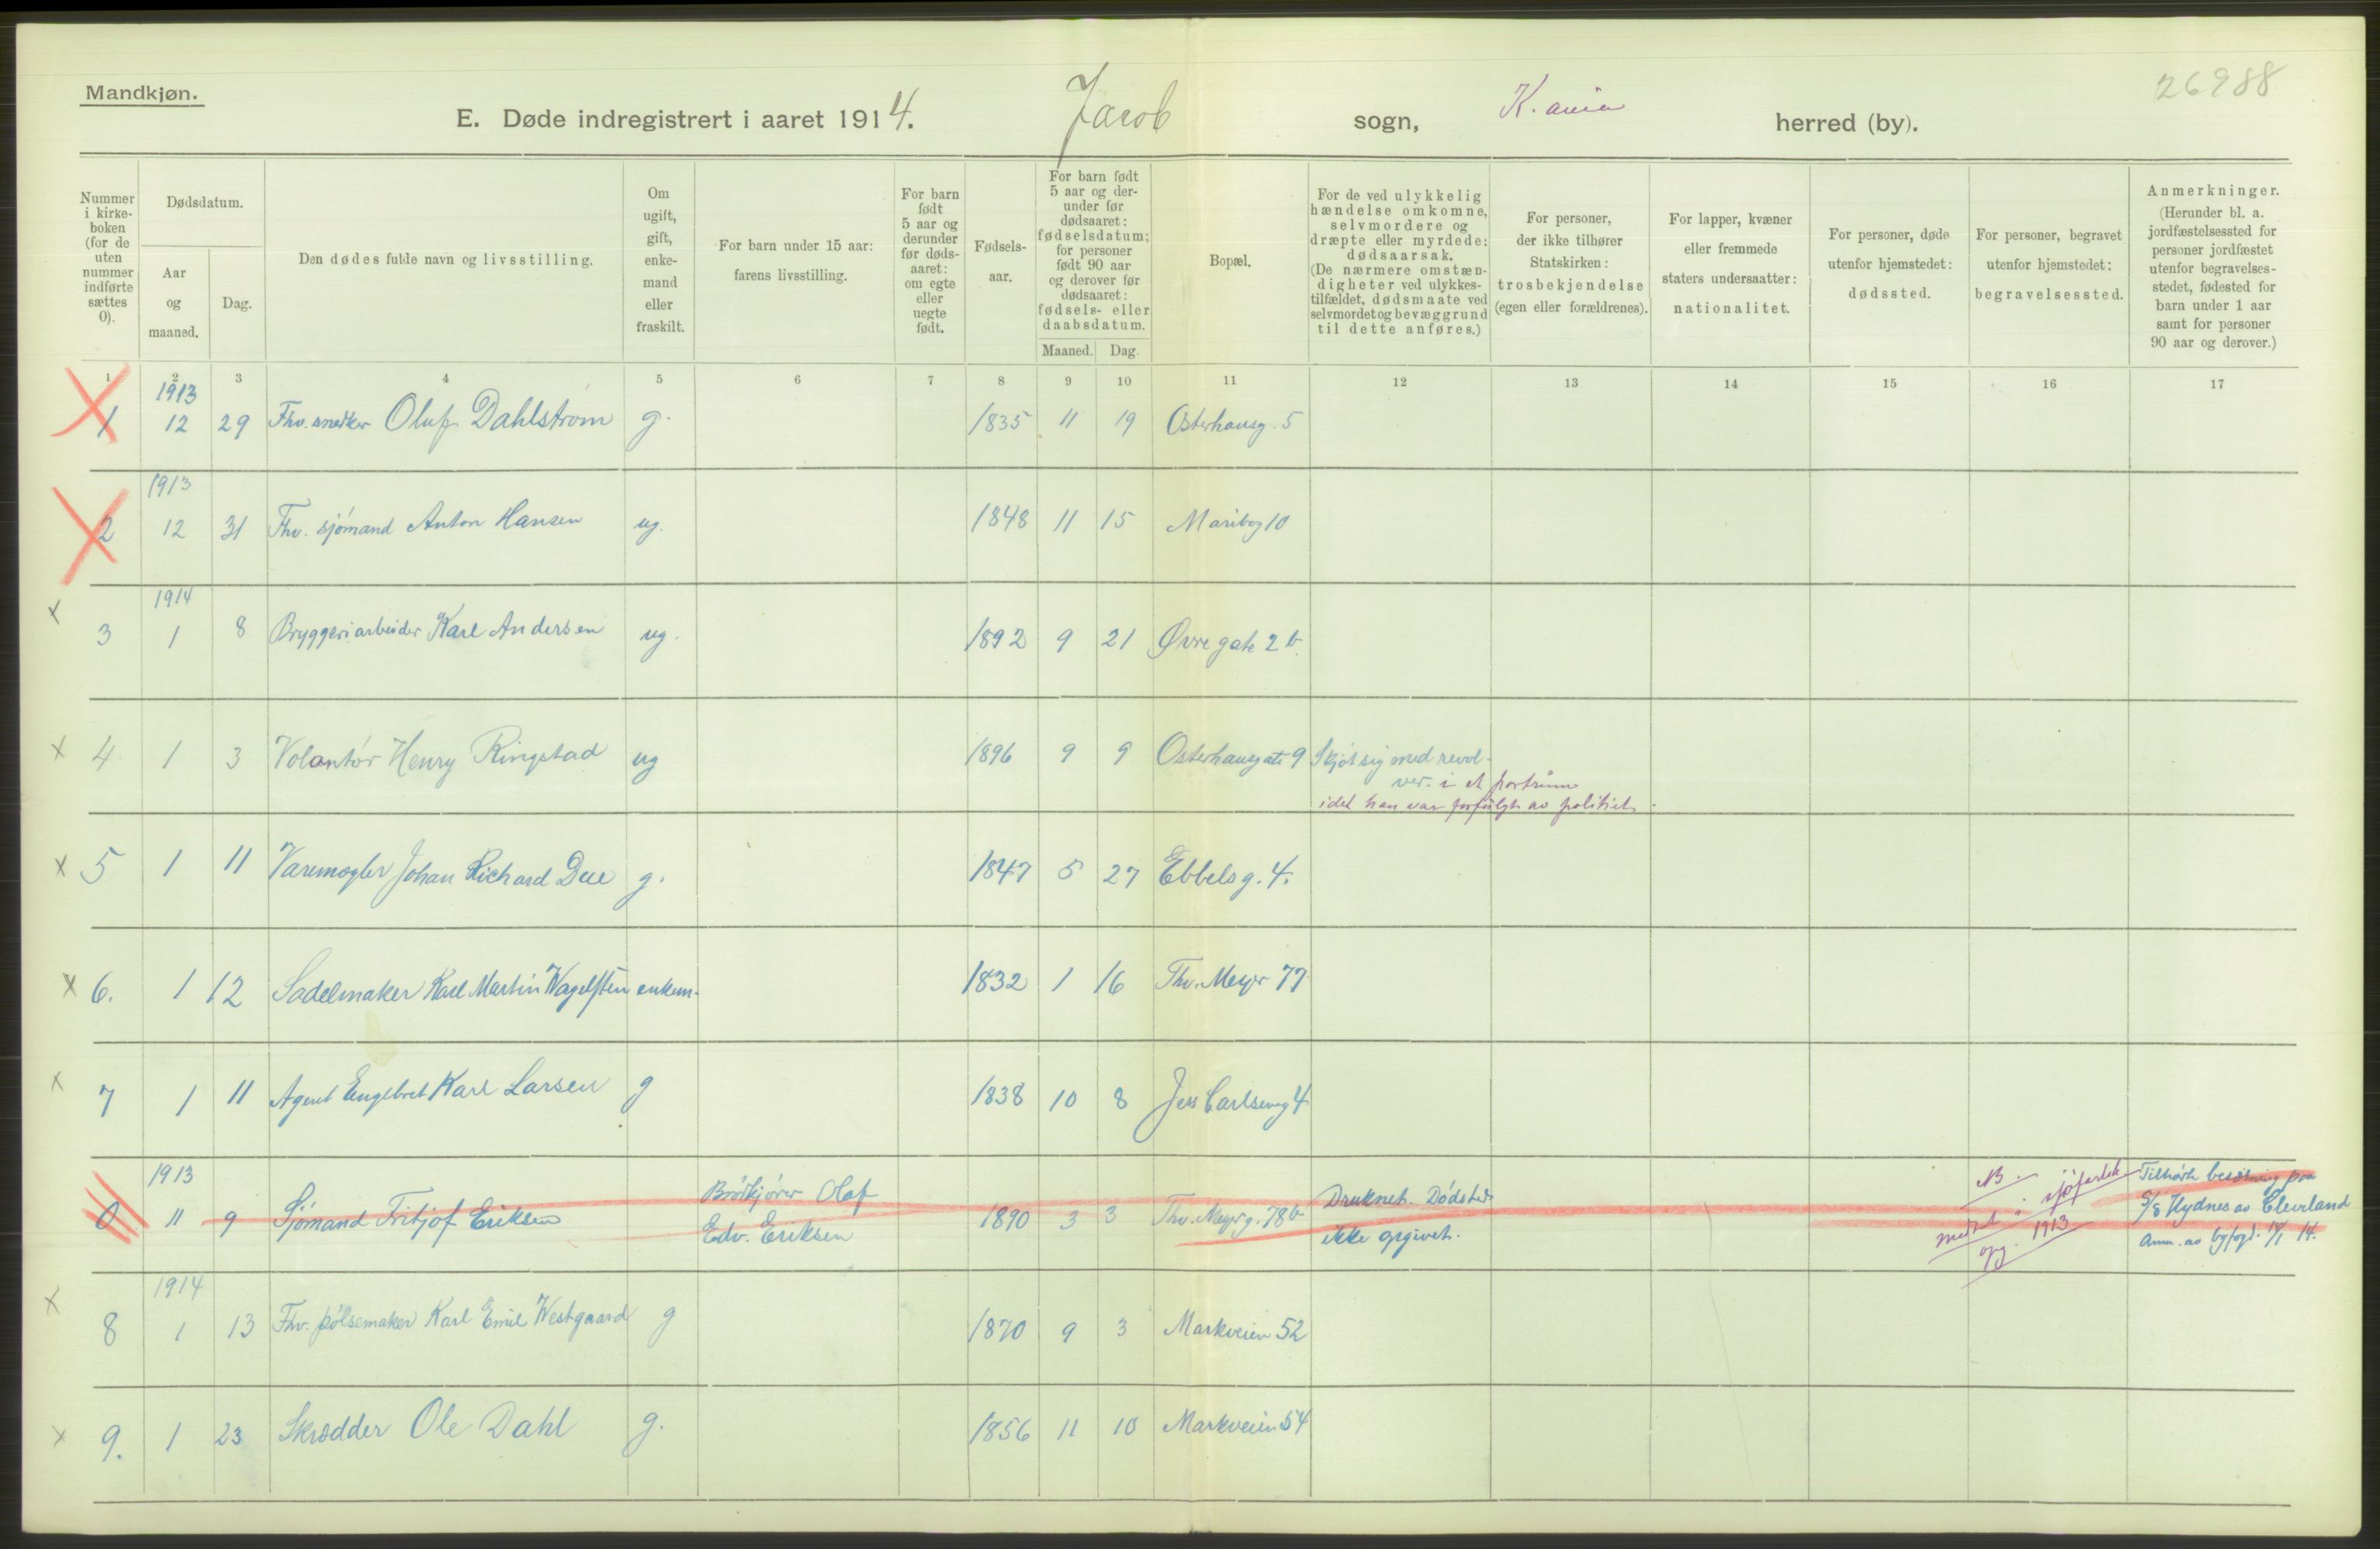 Mandkjøn.
26988
E. Døde indregistrert i aaret 1914. Jacob sogn, K.ania herred (by).
Nummer i kirke-boken (for de uten nummer indførte sættes 0).
Dødsdatum.
Aar og maaned.
Dag.
Den dødes fulde navn og livsstilling.
Om ugift, gift, enke-mand eller fraskilt.
For barn under 15 aar: farens livsstilling.
For barn født 5 aar og derunder før døds-aaret: om egte eller uegte født.
Fødsels-aar.
For barn født 5 aar og der-under før dødsaaret: fødselsdatum; for personer født 90 aar og derover før dødsaaret: fødsels- eller daabsdatum.
Maaned. Dag.
Bopæl.
For de ved ulykkelig hændelse omkomne, selvmordere og dræpte eller myrdede: dødsaarsak. (De nærmere omstæn-digheter ved ulykkes-tilfældet, dødsmaate ved selvmordet og bevæggrund til dette anføres.)
For personer, der ikke tilhører Statskirken: trosbekjendelse (egen eller forældrenes).
For lapper, kvæner eller fremmede staters undersaatter: nationalitet.
For personer, døde utenfor hjemstedet: dødssted.
For personer, begravet utenfor hjemstedet: begravelsessted.
Anmerkninger. (Herunder bl. a. jordfæstelsessted for personer jordfæstet utenfor begravelses-stedet, fødested for barn under 1 aar samt for personer 90 aar og derover.)
1 2 3 4 5 6 7 8 9 10 11 12 13 14 15 16 17
1913
1 12 29 Fhv. snedker Oluf Dahlstrøm g. 1835 11 19 Osterhausg. 5
1913
2 12 31 Fhv. sjømand Anton Hansen ug. 1848 11 15 Maribog 10
1914
x 3 1 8 Bryggeriarbeider Karl Andersen ug. 1892 9 21 Øvre gate 2 b.
x 4 1 3 Volontør Henry Ringstad ug 1896 9 9 Osterhausgate 9 Skjøt sig med revol-
ver. i et portrum
idet han var forfulgt av politiet.
x 5 1 11 Varemægler Johan Richard Due g. 1847 5 27 Ebbelsg. 4.
x 6. 1 12 Sadelmaker Karl Martin enkem. 1832 1 16 Thv. Meyer 77
x 7 1 11 Agent Engebret Karl Larsen g 1838 10 8 Jess Carlseng 4
1913
0 11 9 Sjømand Fritjof Eriksen Brødkjører Olaf
Edv. Eriksen 1890 3 3 Thv. Meyerg. 78b Druknet. Dødsted
ikke opgivet.
NB. medtat i sjøfartsk.
opg. 1913
Tilhørte besætning paa
S/S Kydnes av Cleveland
Anm. av byfogd. 14/1 14.
1914
x 8 1 13 Fhv. pølsemaker Karl Emil Westgaard g 1870 9 3 Markveien 52
x 9. 1 23 Skrædder Ole Dahl g. 1856 11 10 Markveien 54